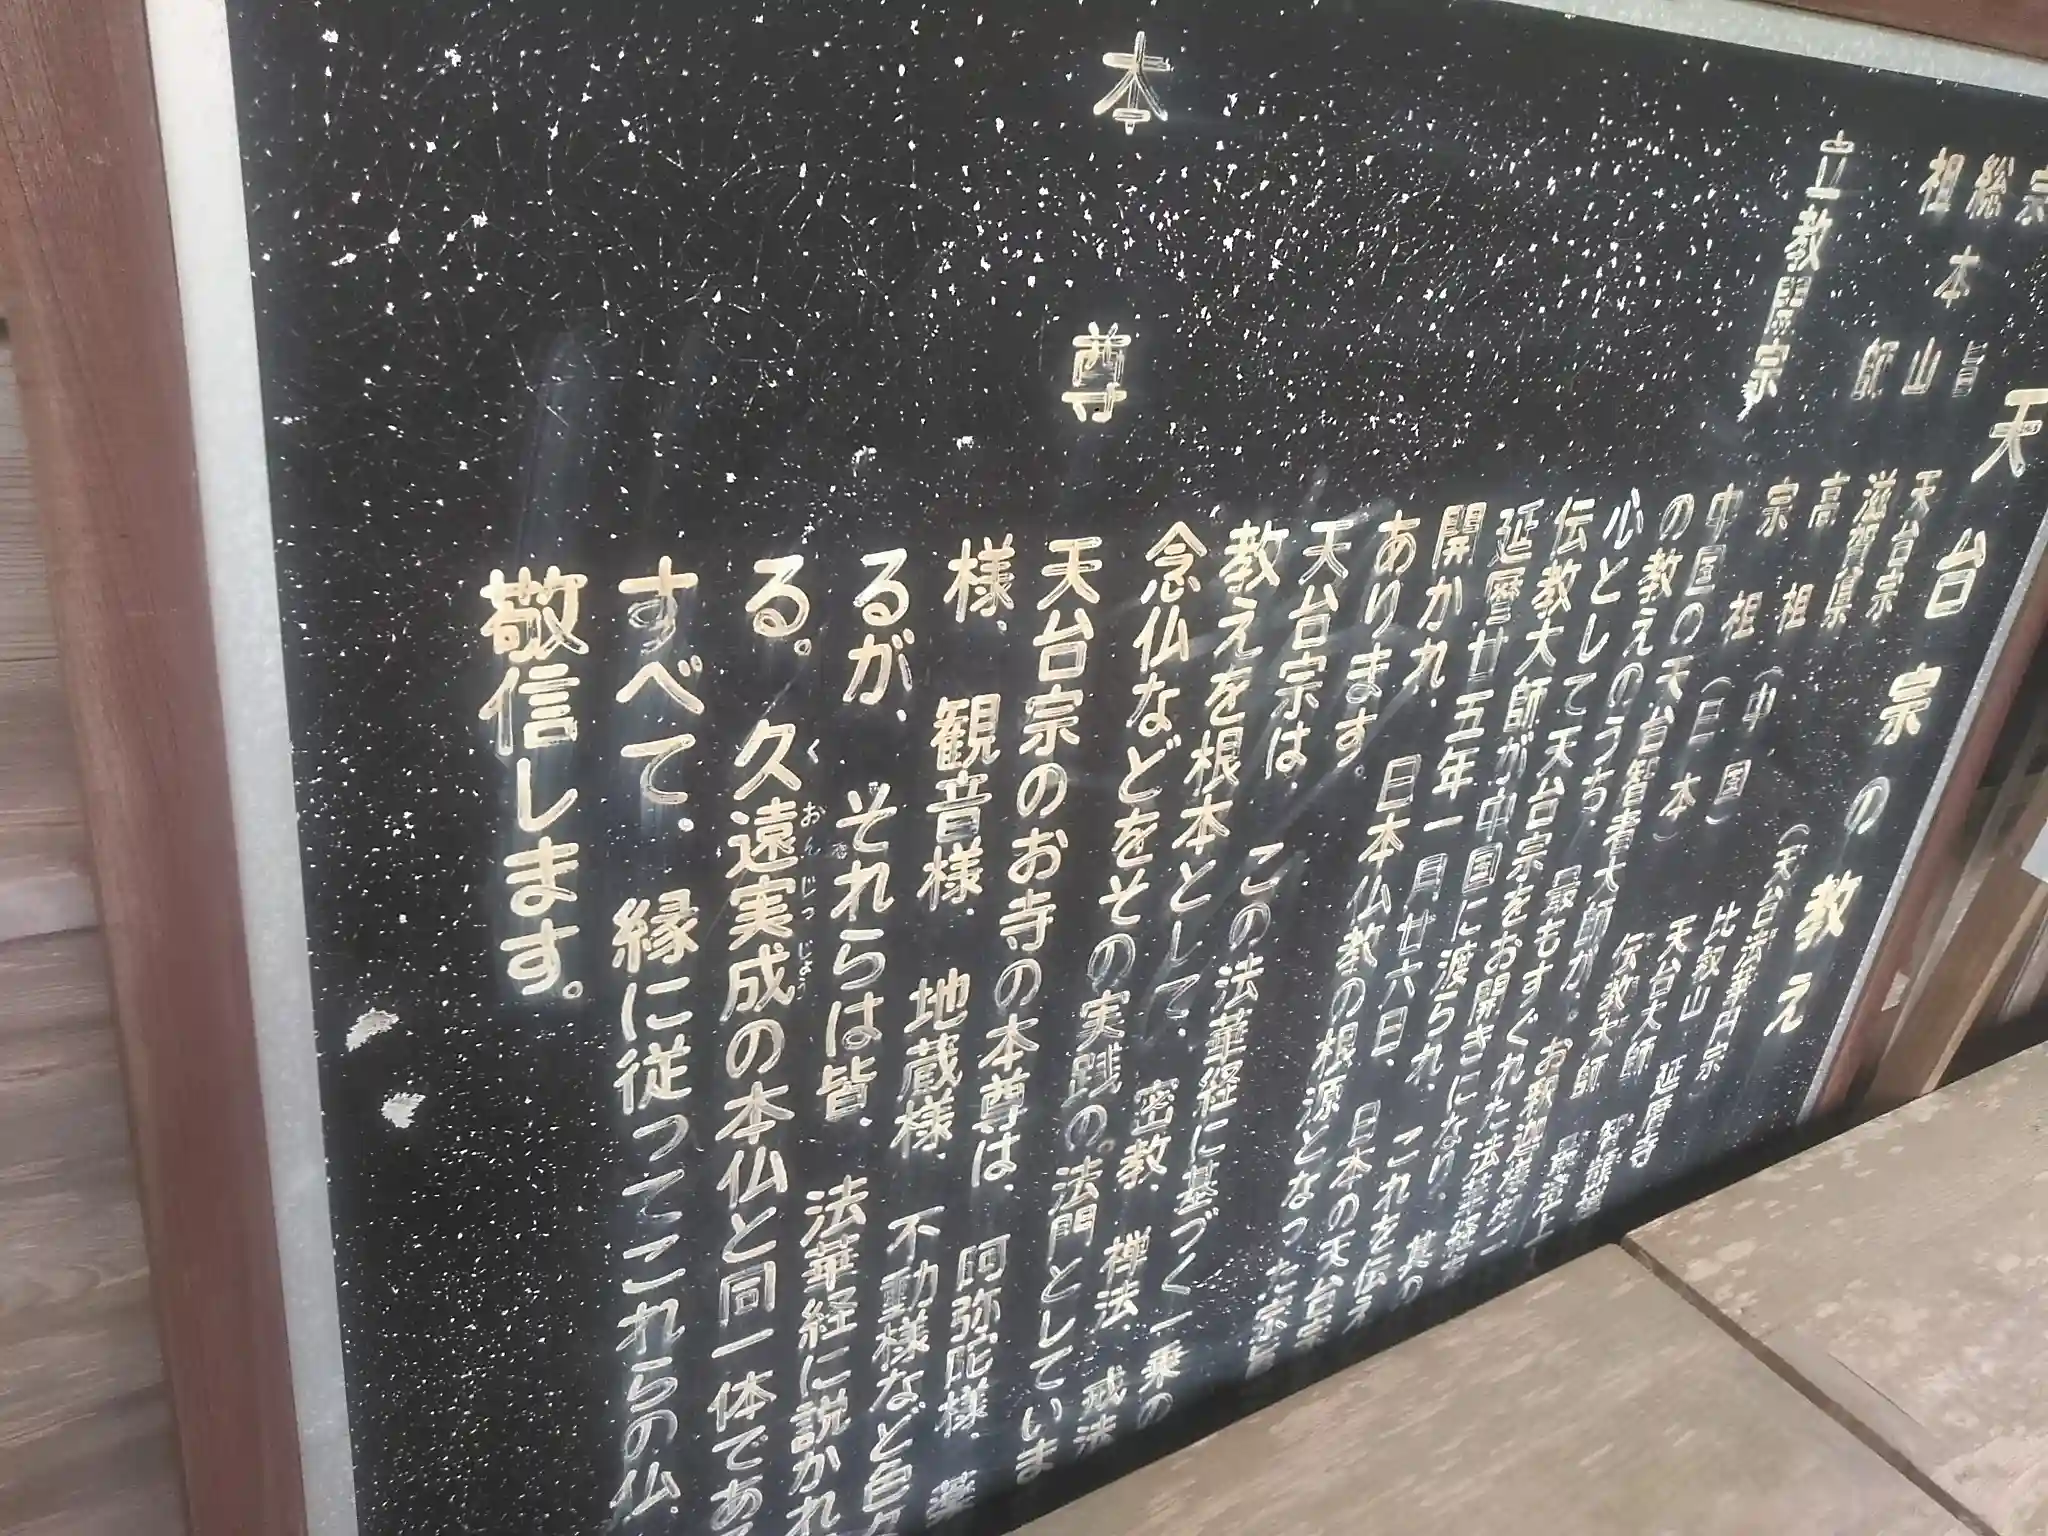 天台宗の教え
宗旨 天台宗 (天台法華円宗)
総本山 滋賀県 比叡山 延暦寺
祖師 高祖 (中国) 天台大師 智顗
宗祖 (日本) 伝教大師 最澄上
立教開宗 中国の天台智者大師が、お釈迦様
の教えのうち、最もすぐれた法華経
心として天台宗をお開きになり、其の
伝教大師が中国に渡られ、これを伝え
延暦廿五年一月廿六日、日本の天台宗
開かれ、日本仏教の根源となった宗
あります。
天台宗は、この法華経に基づく一乗の
教えを根本として、密教、禅法、戒法
念仏などをその実践の。法門としていま
本尊 天台宗のお寺の本尊は、阿弥陀様、薬
様、観音様、地蔵様、不動様など
るが、それらは皆、法華経に説かれ
る。久遠実成の本仏と同一体であ
くおんじつじょう
すべて、縁に従ってこれらの仏、
敬信します。